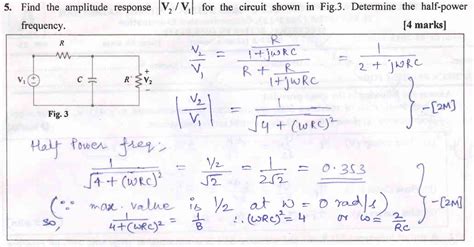 5. Find the amplitude response |V₂ / V₁| for the circuit shown in Fig.3. Determine the half-power
frequency. [4 marks]
R
V₁ C R V₂
+
−
Fig. 3
V₂/V₁ = (R/(1+jωRC)) / (R + R/(1+jωRC)) = 1/(2 + jωRC)
|V₂/V₁| = 1/√(4 + (ωRC)²) } -[2M]
Half Power freq:-
1/√(4 + (ωRC)²) = (1/2)/√2 = 1/(2√2) = 0.353
(∵ max. value is 1/2 at ω = 0 rad/s) } -[2M]
so, 1/(4+(ωRC)²) = 1/8 ∴ (ωRC)² = 4 or ω = 2/RC